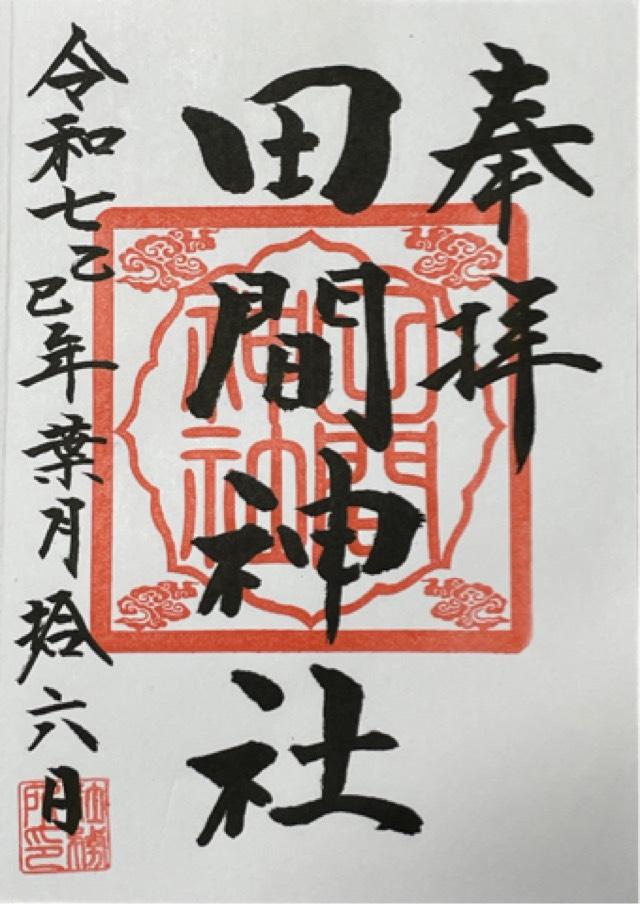 奉拝
田間神社
令和七乙巳年葉月拾六日
田間神社
社務所印